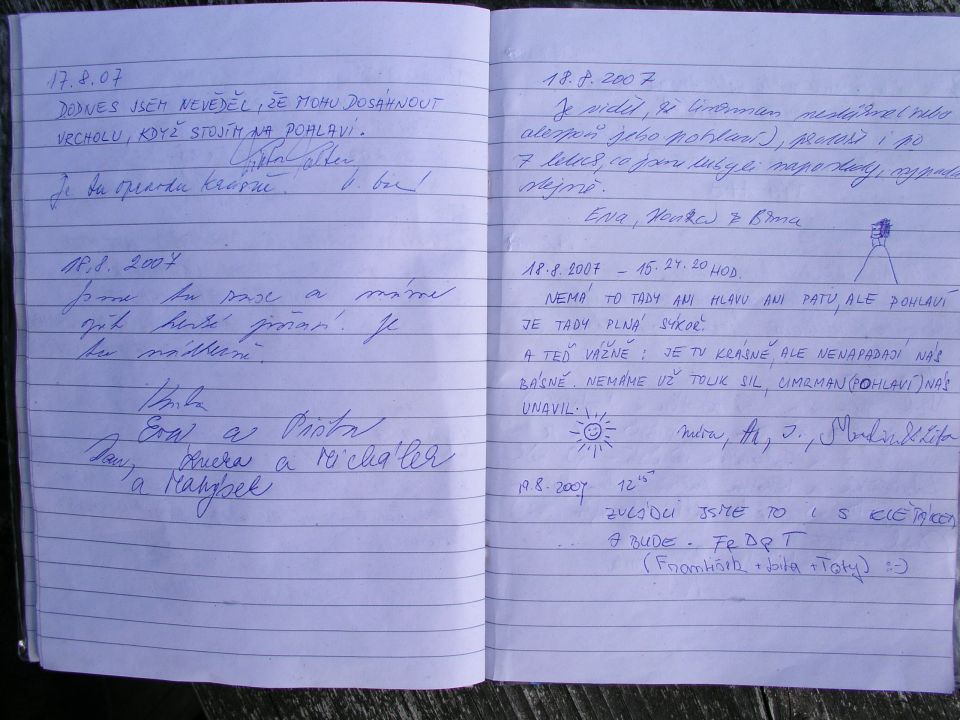 17.8.07
DODNES JSEM NEVĚDĚL, ŽE MOHU DOSÁHNOUT
VRCHOLU, KDYŽ STOJÍM NA POHLAVÍ.
Je tu opravdu krásně.
18.8. 2007
Jsme tu zase a máme
je
tu nádherně.
Eva a
Jan, a Michálek
a Matýsek
18.8.2007
Je vidět, že Cimrman nestárne (nebo
alespoň jeho pohlaví), protože i po
7 letech, co jsme tu byli naposledy, vypadá
stejně.
Eva, Honza z Brna
18.8.2007 – 15.24.20 HOD.
NEMÁ TO TADY ANI HLAVU ANI PATU, ALE POHLAVÍ
JE TADY PLNÁ SÝKOŘ.
A TEĎ VÁŽNĚ: JE TU KRÁSNĚ, ALE NENAPADAJÍ NÁS
BÁSNĚ. NEMÁME UŽ TOLIK SIL, CIMRMAN (POHLAVÍ) NÁS
UNAVIL.
19.8.2007 12 15
ZVLÁDLI JSME TO I S
A BUDE.
(František + + Toty) :-)